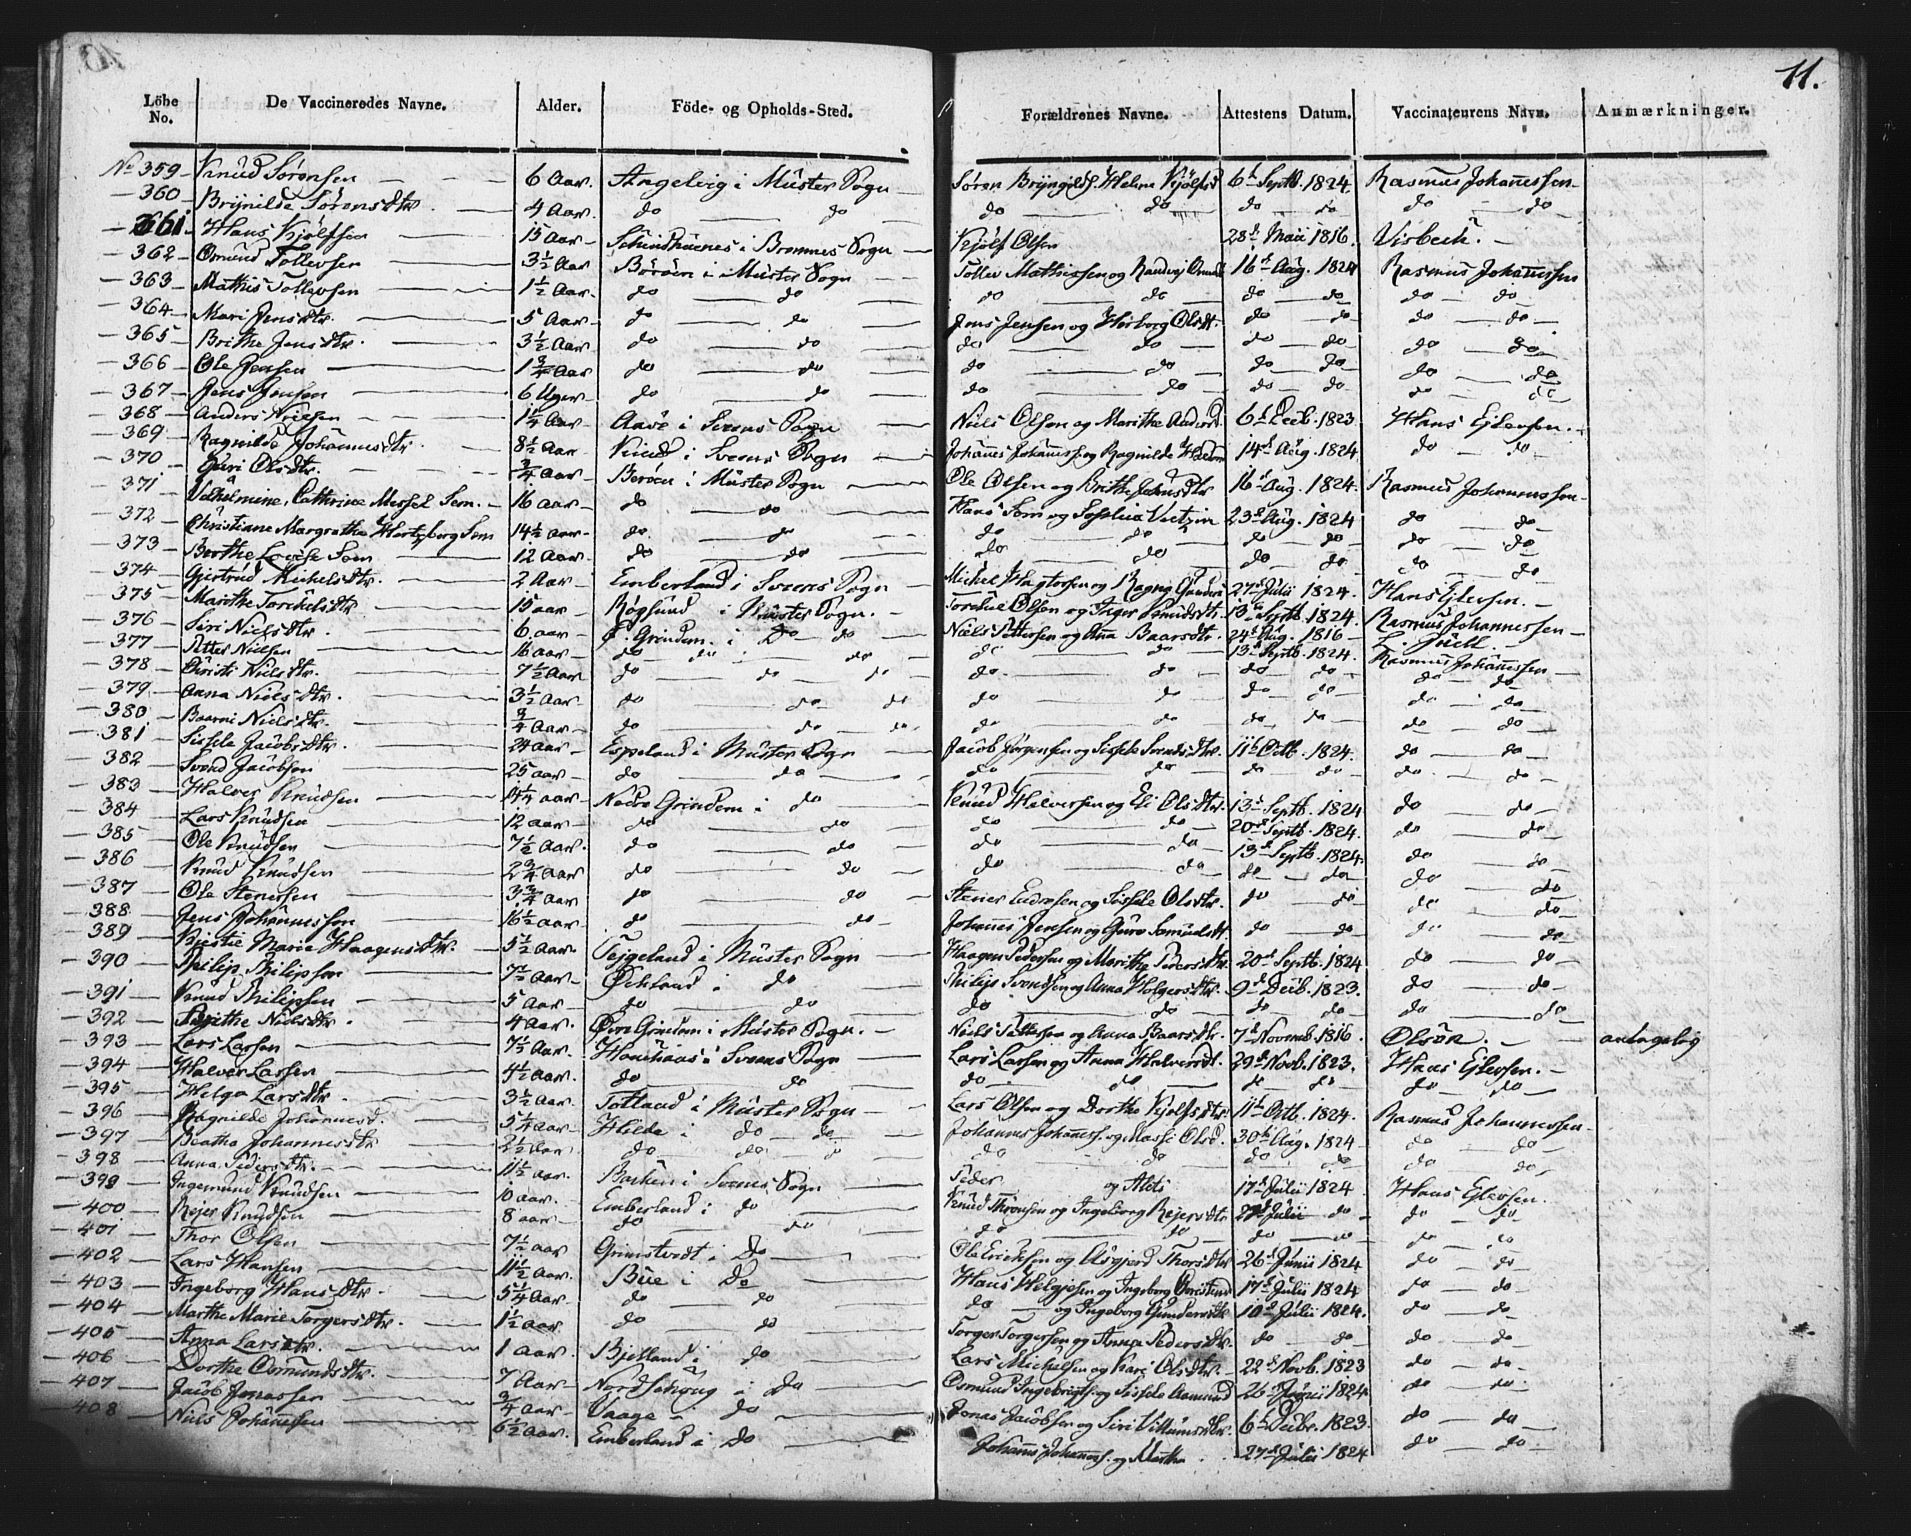 11.
Löbe No. De Vaccineredes Navne. Alder. Föde- og Opholds-Sted. Forældrenes Navne. Attestens Datum. Vaccinateurens Navn. Anmærkninger.
No 359 Knud Sørensen 6 Aar. Angelvig i Müster Sogn Søren 6t Septb. 1824. Rasmus Johannessen
360 Brynilda Sørensdtr. 4 Aar. do do do do do do do do
361 Hans Kjølfsen 15 Aar i Bremnes Sogn Kjølf Olsen 28d Maii 1816. Visbech.
362 Osmund Tollevsen 3½ Aar Börøen i Müster Sogn Tollev Mathissen og 16d Aug. 1824 Rasmus Johannessen
363 Mathis Tollevsen 1½ Aar. do do do do do do do do
364 Mari Jensdtr. 5 Aar do do Jens Jensen og Herborg Olsdt. do do do do
365 Brithe Jensdtr. 3½ Aar do do do do do do do do
366 Ole Jensen 1¾ Aar do do do do do do do do
367 Jens Jensen 6 Uger do do do do do do do do
368 Anders Nielsen 1¼ Aar i Sveens Sogn Niels Olsen og Marithe 6d Decb. 1823 Hans Ejlevsen.
369 Ragnilde Johannesdtr. 8½ Aar i Sveens Sogn Johannes Johanness. og Ragnilde 14d Aug. 1824 do do
370 Guri Olsdtr. ¾ Aar Berøen i Müster Sogn Ole Olsen og Brithe Johnsdtr 16d Aug. 1824. Rasmus Johannessen
371 Vilhelmine Cathrine Messel Sem. 16 Aar do do Hans Sem og Sophia 23d Aug. 1824 do do
372 Christiane Margrethe Hertzberg Sem 14½ Aar do. do do do do do do do
373 Berthe Lovise Sem 12 Aar do do do do do do do do
374 Gjertrud Michelsdtr. 2 Aar Emberland i Sveens Sogn Michel og 27d Julii 1824. Hans Ejlevsen.
375 Marithe Torchelsdtr 15 aar Røgsund i Müster Sogn. Torchel Olsen og Inger Knudsdt. 13d Septb. 1824. Rasmus Johannessen
376 Siri Nielsdtr. 6. aar Grindem i Do do Niels Pettersen og Ana Baarsdtr. 24d Aug. 1816
377 Petter Nielsen 16 aar do do do do do 13d Septb. 1824. Rasmus Johannessen
378 Christi Nielsdtr. 7½ Aar do do do do do do do do do
379 Anna Nielsdtr. 3½ Aar do do do do do do do do do
380 Baarni Nielsdtr. ¾ Aar do do do do do do do do do
381 Sissela Jacobsdtr. 24 aar Espeland i Müster Sogn Jacob Jørgensen og Sissele Svendsdtr. 11t Octb. 1824. do do
382 Svend Jacobsen 25 aar do do do do do do do do
383 Halver Knudsen 14¼ aar Nedre Grindem i do Knud Halversen og Eli Olsdtr. 13d Septb. 1824 do do
384 Lars Knudsen 12 aar do do do do 20d Septb. 1824. do do
385 Ole Knudsen 7½ aar. do do do do 13d Septb. 1824. do do
386 Knud Knudsen 2¾ aar do do do do do do do do
387 Ole Stenersen 3¾ aar do do Stener Endresen og Sissele Olsdtr. do do do do
388 Jens Johannessen 16½ aar do do Johannes Jensen og do do do do
389 Kirstie Maria Haagensdtr. 5½ aar. Tejgeland i Müster Sogn Haagen Pedersen og Marithe Pedersdtr 20d Septb. 1824 do do
390 Philip Philipsen 7½ aar. Økland i do Philip Svendsen og Anna Holgersdtr. 9d Decb. 1823. do do
391 Knud Philipsen 5 aar do do do do do do do do
392 Brithe Nielsdtr. 4 aar. Øvre Grindem i Müster Sogn. Niels Pettersen og Anna Baarsdtr. 7d Novemb. 1816 Olsøn. antagelig
393 Lars Larsen 7½ Aar. i Sveens Sogn Lars Larsen og Anna Halversdt. 29d Novb. 1823. Hans Ejlevsen.
394 Halver Larsen 4½ Aar. do do do do do do do do
395 Helga Larsdtr. 3½ aar. Totland i Müster Sogn Lars Olsen og Dorthe Kjølfsdtr 11t Octb. 1824. Rasmus Johannessen
396 Ragnilde Johannesd. 5¼ aar Hilde i do do Johannes Johanness. og Massi Olsd. 30d Aug. 1824 do do
397 Beatha Johannesdtr 2½ aar do do do do do do do do do
398 Anna Pedersdtr. 11½ aar. i Sveens Sogn Peder og 17d Julii 1824 Hans Ejlevsen.
399 Ingemund Knudsen 10 aar. Emberland i do Knud Thronsen og Ingeborg Rejersdtr 27d Julii do do do
400 Rejer Knudsen 8 aar. do do do do do do do do
401 Thor Olsen 7½ aar Grimstvedt i Do Ole Ericksen og Asgjerd Thorsdtr 26d Junii 1824 do do
402 Lars Hansen 11½ aar. Büe i Do Hans Helgesen og Ingeborg 17d Julii 1824 do do
403 Ingeborg Hansdtr. 5¼ aar do do do og Ingeborg Gundersdtr 10d Julii 1824. do do
404 Marthe Marie Torgersdtr. 1½ aar do do Torger Torgersen og Anna Pedersdtr. do do do do
405 Anna Larsdtr. 1 aar. Bjelland i do Lars Michelsen og Kari Olsdtr. 22d Novb. 1823 do do
406 Dorthe Osmundsdtr. 7 Aar Nordskoug i Do Osmund Ingebrigts. og Sissele 26d Junii 1824 do do
407 Jacob Jonassen ¾ aar Vaage Do Jonas Jacobsen og Siri Villumsdtr. 6t Decbr. 1823. do do
408 Niels Johannessen 6½ aar. Emberland i Do Johannes Johanness. og Martha 27d Julii 1824 do do